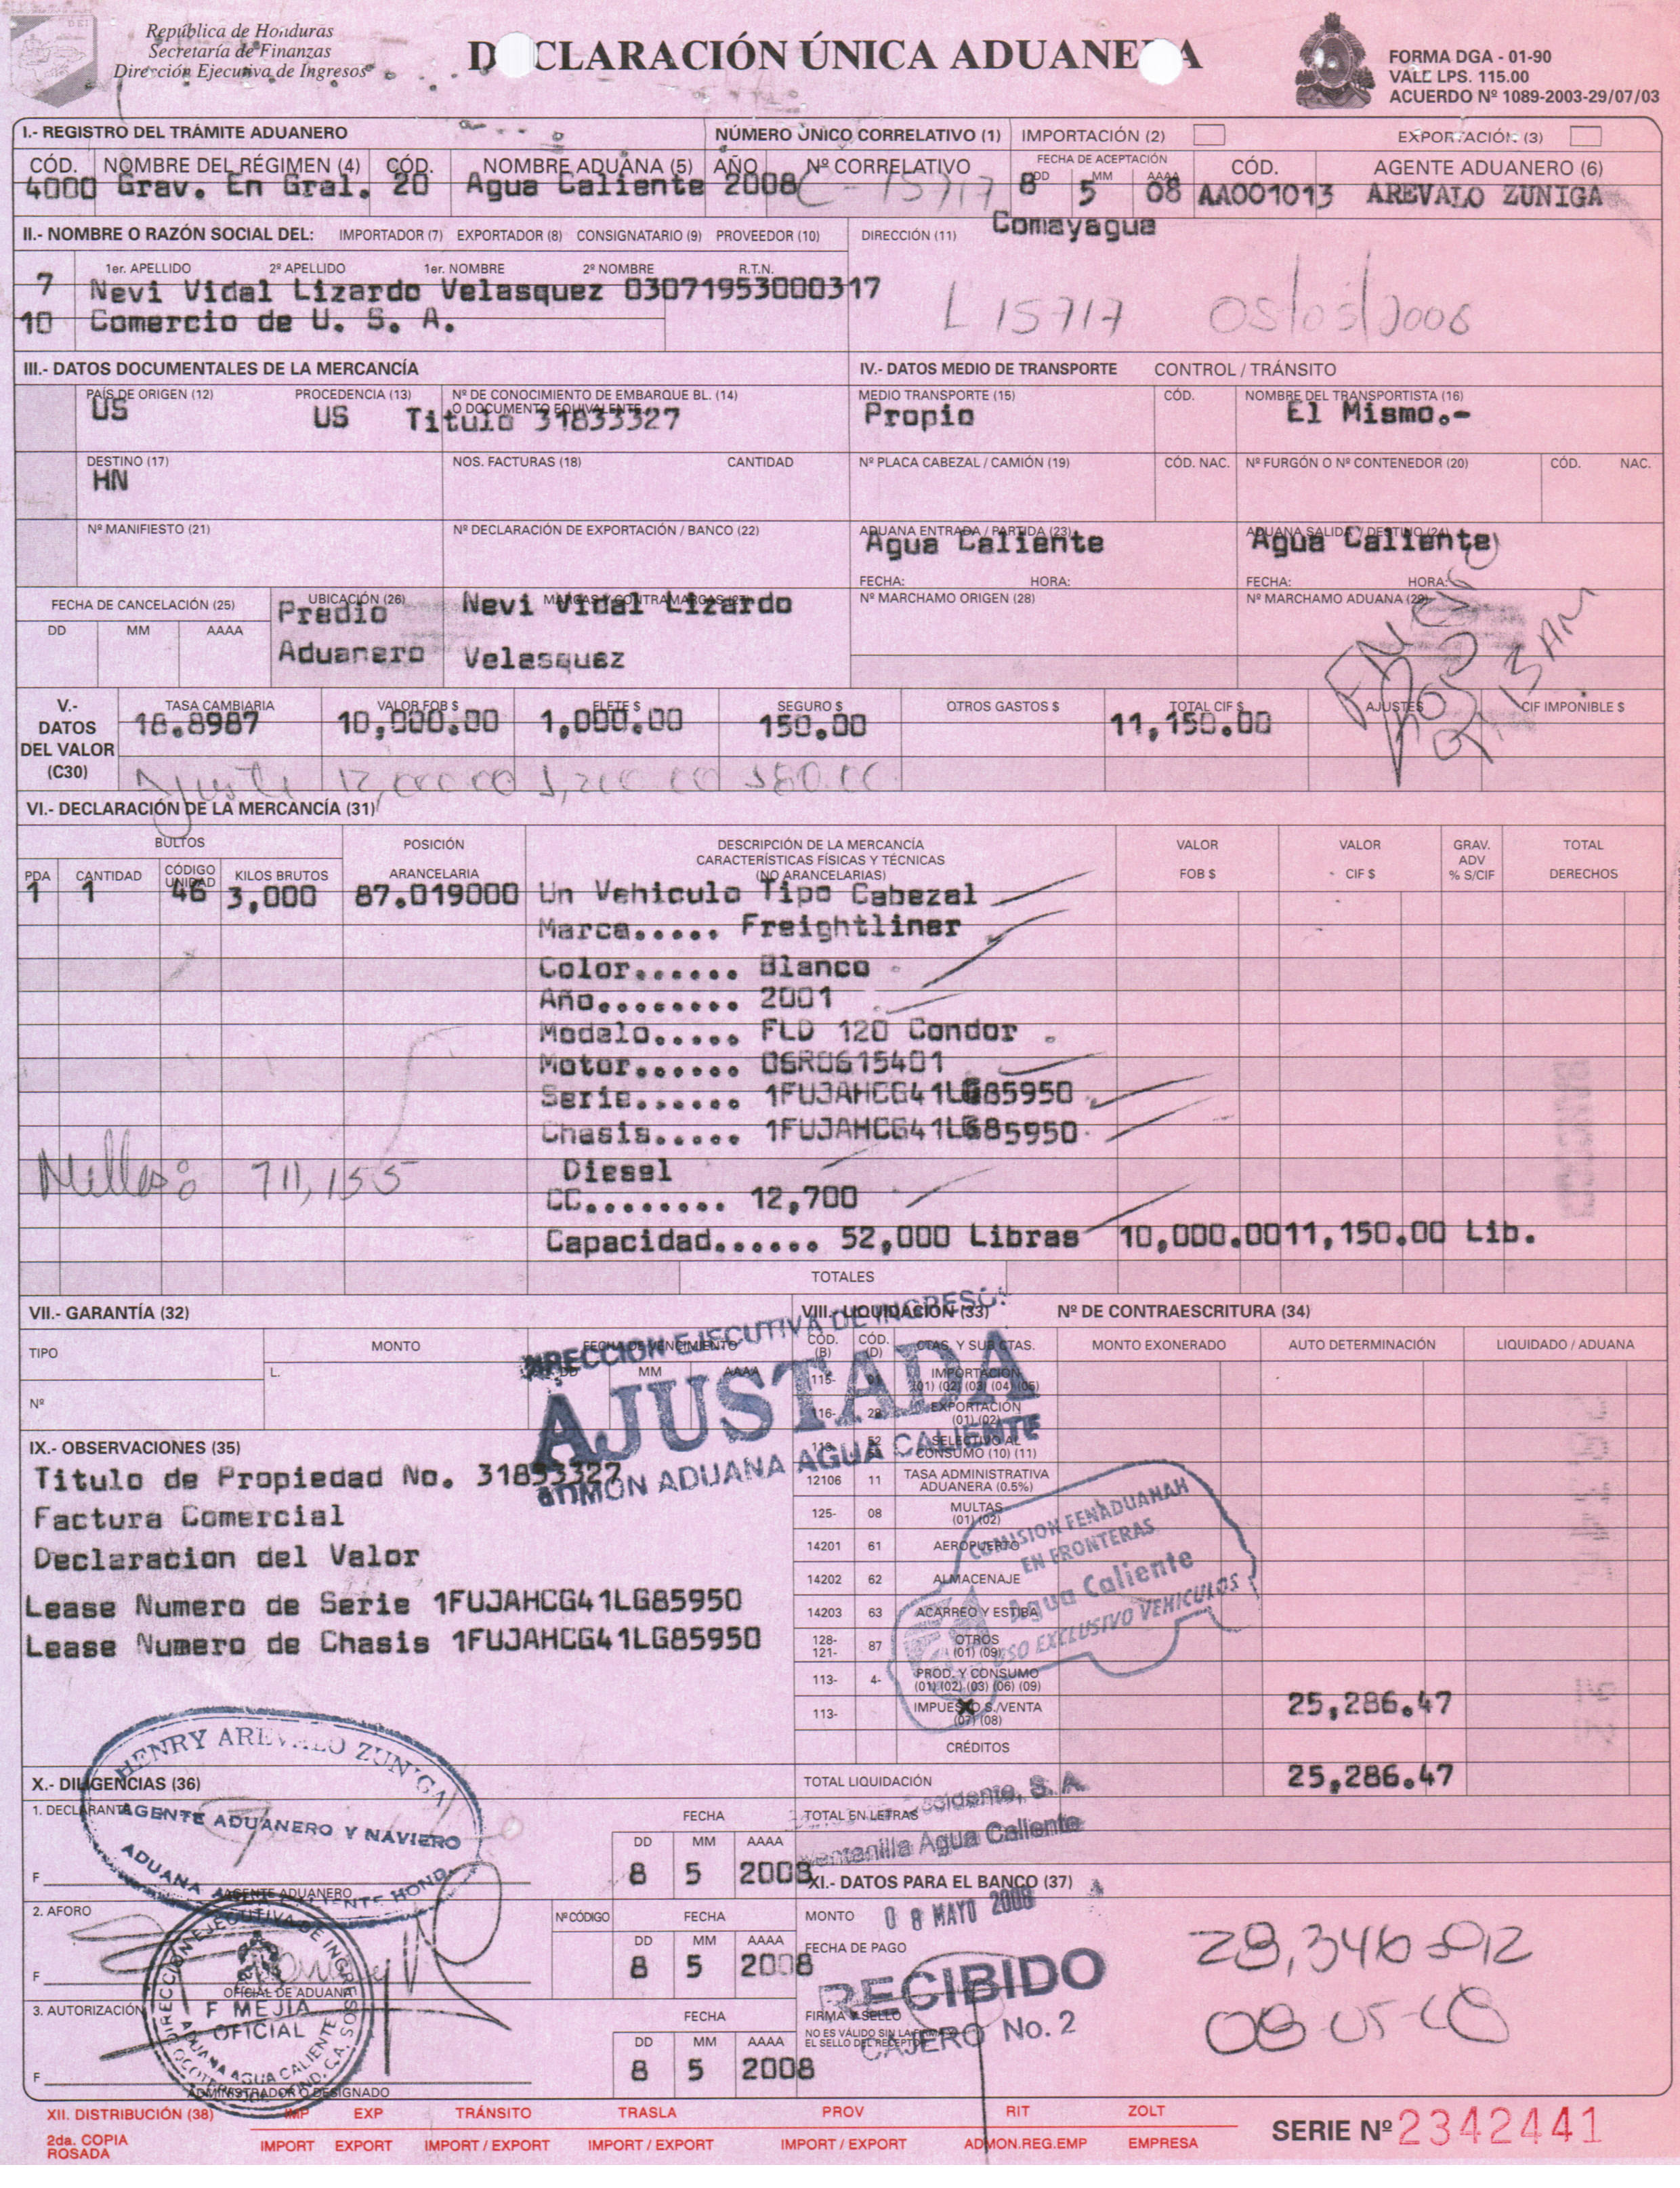 República de Honduras
Secretaría de Finanzas
Dirección Ejecutiva de Ingresos
DECLARACIÓN ÚNICA ADUANERA
FORMA DGA - 01-90
VALE LPS. 115.00
ACUERDO Nº 1089-2003-29/07/03
I.- REGISTRO DEL TRÁMITE ADUANERO
NÚMERO ÚNICO CORRELATIVO (1) IMPORTACIÓN (2) EXPORTACIÓN (3)
CÓD. NOMBRE DEL RÉGIMEN (4) CÓD. NOMBRE ADUANA (5) AÑO Nº CORRELATIVO FECHA DE ACEPTACIÓN CÓD. AGENTE ADUANERO (6)
DD MM AAAA
4000 Grav. En Gral. 20 Agua Caliente 2008 C-15717 8 5 08 AA001013 AREVALO ZUNIGA
II.- NOMBRE O RAZÓN SOCIAL DEL: IMPORTADOR (7) EXPORTADOR (8) CONSIGNATARIO (9) PROVEEDOR (10) DIRECCIÓN (11) Comayagua
1er. APELLIDO 2º APELLIDO 1er. NOMBRE 2º NOMBRE R.T.N.
7 Nevi Vidal Lizardo Velasquez 03071953000317
10 Comercio de U. S. A.
L 15717
III.- DATOS DOCUMENTALES DE LA MERCANCÍA
IV.- DATOS MEDIO DE TRANSPORTE CONTROL / TRÁNSITO
PAÍS DE ORIGEN (12) PROCEDENCIA (13) Nº DE CONOCIMIENTO DE EMBARQUE BL. (14)
O DOCUMENTO EQUIVALENTE
MEDIO TRANSPORTE (15) CÓD. NOMBRE DEL TRANSPORTISTA (16)
US US Titulo 31833327 Propio El Mismo.-
DESTINO (17) NOS. FACTURAS (18) CANTIDAD Nº PLACA CABEZAL / CAMIÓN (19) CÓD. NAC. Nº FURGÓN O Nº CONTENEDOR (20) CÓD. NAC.
HN
Nº MANIFIESTO (21) Nº DECLARACIÓN DE EXPORTACIÓN / BANCO (22) ADUANA ENTRADA / PARTIDA (23) ADUANA SALIDA / DESTINO (24)
Agua Caliente Agua Caliente
FECHA: HORA: FECHA: HORA:
FECHA DE CANCELACIÓN (25) UBICACIÓN (26) MARCAS Y CONTRAMARCAS (27) Nº MARCHAMO ORIGEN (28) Nº MARCHAMO ADUANA (29)
DD MM AAAA
Predio Nevi Vidal Lizardo
Aduanero Velasquez
9:13 AM
V.-
DATOS
DEL VALOR
(C30)
TASA CAMBIARIA VALOR FOB $ FLETE $ SEGURO $ OTROS GASTOS $ TOTAL CIF $ AJUSTES CIF IMPONIBLE $
18.8987 10,000.00 1,000.00 150.00 11,150.00
Ajuste 12,000.00 1,200.00 180.00
VI.- DECLARACIÓN DE LA MERCANCÍA (31)
BULTOS POSICIÓN DESCRIPCIÓN DE LA MERCANCÍA VALOR VALOR GRAV. TOTAL
CARACTERÍSTICAS FÍSICAS Y TÉCNICAS ADV
PDA CANTIDAD CÓDIGO UNIDAD KILOS BRUTOS ARANCELARIA (NO ARANCELARIAS) FOB $ CIF $ % S/CIF DERECHOS
1 1 46 3,000 87.019000 Un Vehiculo Tipo Cabezal
Marca..... Freightliner
Color...... Blanco
Año........ 2001
Modelo..... FLD 120 Condor
Motor...... 06R0615401
Serie...... 1FUJAHCG41LG85950
Chasis..... 1FUJAHCG41LG85950
Millas: 711,155
Diesel
CC........ 12,700
Capacidad...... 52,000 Libras 10,000.00 11,150.00 Lib.
TOTALES
VII.- GARANTÍA (32)
VIII.- LIQUIDACIÓN (33) Nº DE CONTRAESCRITURA (34)
TIPO MONTO FECHA DE VENCIMIENTO
L. DD MM AAAA
Nº
DIRECCION EJECUTIVA DE INGRESOS
AJUSTADA
ADMON ADUANA AGUA CALIENTE
CÓD. (B) CÓD. (D) CTAS. Y SUB CTAS. MONTO EXONERADO AUTO DETERMINACIÓN LIQUIDADO / ADUANA
115- 01 IMPORTACIÓN
(01) (02) (03) (04) (05)
116- 29 EXPORTACIÓN
(01) (02)
113- 52 SELECTIVO AL
CONSUMO (10) (11)
12106 11 TASA ADMINISTRATIVA
ADUANERA (0.5%)
125- 08 MULTAS
(01) (02)
14201 61 AEROPUERTO
14202 62 ALMACENAJE
14203 63 ACARREO Y ESTIBA
128-
121- 87 OTROS
(01) (09)
113- 4- PROD. Y CONSUMO
(01) (02) (03) (06) (09)
113- IMPUESTO S./VENTA
(07) (08) 25,286.47
CRÉDITOS
TOTAL LIQUIDACIÓN 25,286.47
COMISION FENADUANAH
EN FRONTERAS
Agua Caliente
USO EXCLUSIVO VEHICULOS
IX.- OBSERVACIONES (35)
Titulo de Propiedad No. 31833327
Factura Comercial
Declaracion del Valor
Lease Numero de Serie 1FUJAHCG41LG85950
Lease Numero de Chasis 1FUJAHCG41LG85950
HENRY AREVALO ZUNIGA
AGENTE ADUANERO Y NAVIERO
ADUANA AGUA CALIENTE HOND.
X.- DILIGENCIAS (36)
1. DECLARANTE FECHA
DD MM AAAA
8 5 2008
F
AGENTE ADUANERO
TOTAL EN LETRAS
Occidente, S. A.
Ventanilla Agua Caliente
XI.- DATOS PARA EL BANCO (37)
2. AFORO Nº CÓDIGO FECHA
DD MM AAAA
8 5 2008
F
OFICIAL DE ADUANA
MONTO 08 MAYO 2008
FECHA DE PAGO
RECIBIDO
CAJERO No. 2
28,346
3. AUTORIZACIÓN FECHA
DD MM AAAA
8 5 2008
F
ADMINISTRADOR O DESIGNADO
FIRMA Y SELLO
NO ES VÁLIDO SIN LA FIRMA Y
EL SELLO DEL RECEPTOR
DIRECCION EJECUTIVA DE INGRESOS
F MEJIA
OFICIAL
ADUANA AGUA CALIENTE
XII. DISTRIBUCIÓN (38) IMP EXP TRÁNSITO TRASLA PROV RIT ZOLT
2da. COPIA
ROSADA
IMPORT EXPORT IMPORT / EXPORT IMPORT / EXPORT IMPORT / EXPORT ADMON.REG.EMP EMPRESA
SERIE Nº 2342441